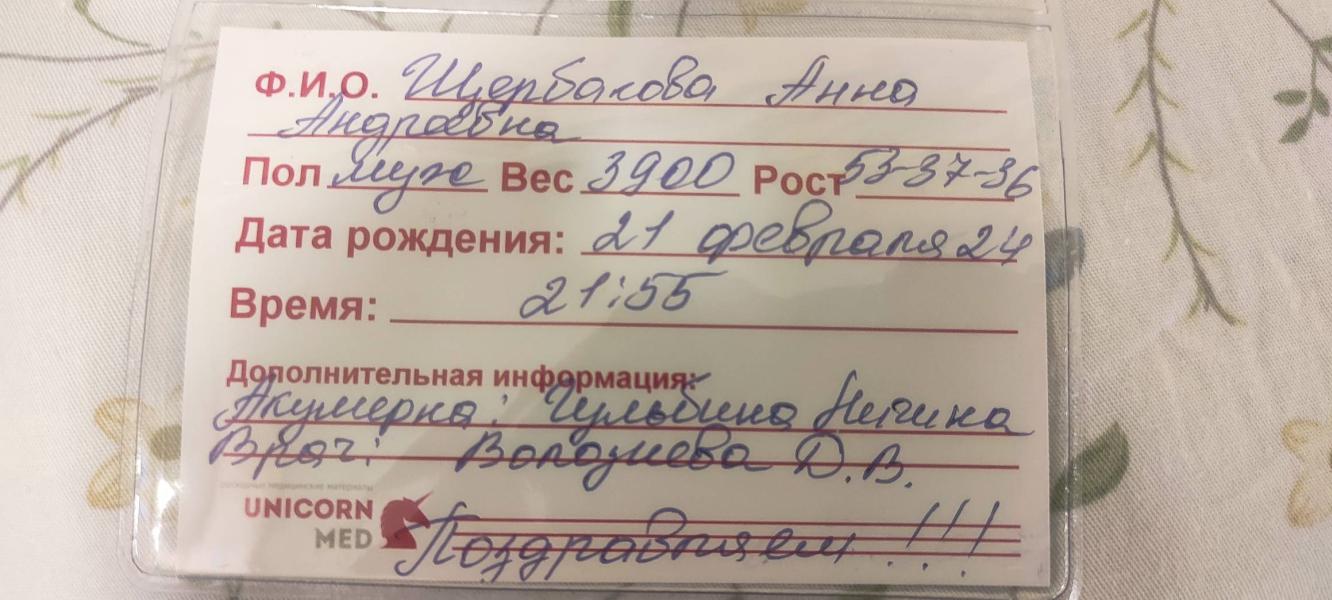 Ф.И.О. Щербакова Анна
Андреевна
Пол муж Вес 3900 Рост 53-37-36
Дата рождения: 21 февраля 24
Время: 21:55
Дополнительная информация:
Акушерка: Гульбина Нигина
Врач: Д.В.
расходные медицинские материалы
UNICORN
MED
Поздравляем!!!